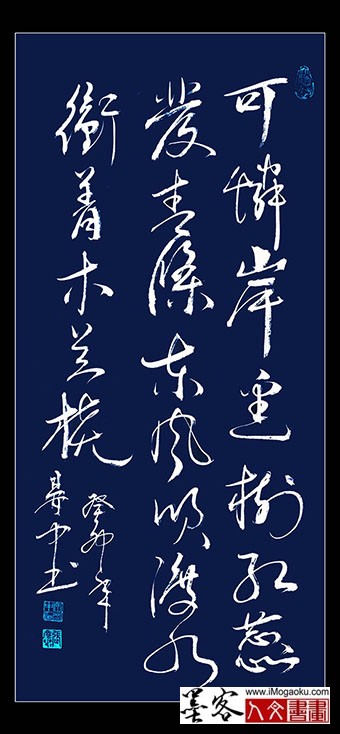 可憐岸邊樹紅蕊
發青條東風吹渡水
衝着木蘭橈
癸卯年
中书
www.iMogaoku.com
墨客
人文書畫